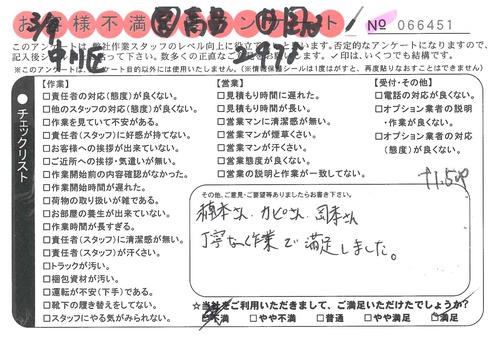 お客様不満 アンケート
№ 066451
3/8
中川区
このアンケートは、弊社作業スタッフのレベル向上に役立てております。否定的なアンケートになりますので、
記入後シールを貼って下さい。数多くの正直なご意見をお願いします。✓印は、いくつでも結構です。
※このアンケートは、アンケート目的以外には使用いたしません。(※情報保護シールは1度はがすと、再度貼りなおすことはできません)
●チェックリスト
【作業】
□責任者の対応(態度)が良くない。
□他のスタッフの対応(態度)が良くない。
□作業を見ていて不安がある。
□責任者(スタッフ)に好感が持てない。
□お客様への挨拶が出来ていない。
□ご近所への挨拶・気遣いが無い。
□作業開始前の内容確認がなかった。
□作業開始時間が遅れた。
□荷物の取り扱いが雑である。
□お部屋の養生が出来ていない。
□作業時間が長すぎる。
□責任者(スタッフ)に清潔感が無い。
□責任者(スタッフ)が汗くさい。
□トラックが汚い。
□梱包資材が汚い。
□運転が不安(下手)である。
□靴下の履き替えをしてない。
□スタッフにやる気がみられない。
【営業】
□見積もり時間に遅れた。
□見積もり時間が長い。
□営業マンに清潔感が無い。
□営業マンが煙草くさい。
□営業マンが汗くさい。
□営業態度が良くない。
□営業の説明と作業が一致してない。
【受付・その他】
□電話の対応が良くない。
□オプション業者の説明
・作業が良くない。
□オプション業者の対応
(態度)が良くない。
その他、ご意見・ご要望等ありましたらお書き下さい。
植本さん カピさん 司本さん
丁寧な作業で満足しました。
☆当社をご利用いただきまして、ご満足いただけたでしょうか?
□不満 □やや不満 □普通 □やや満足 □満足